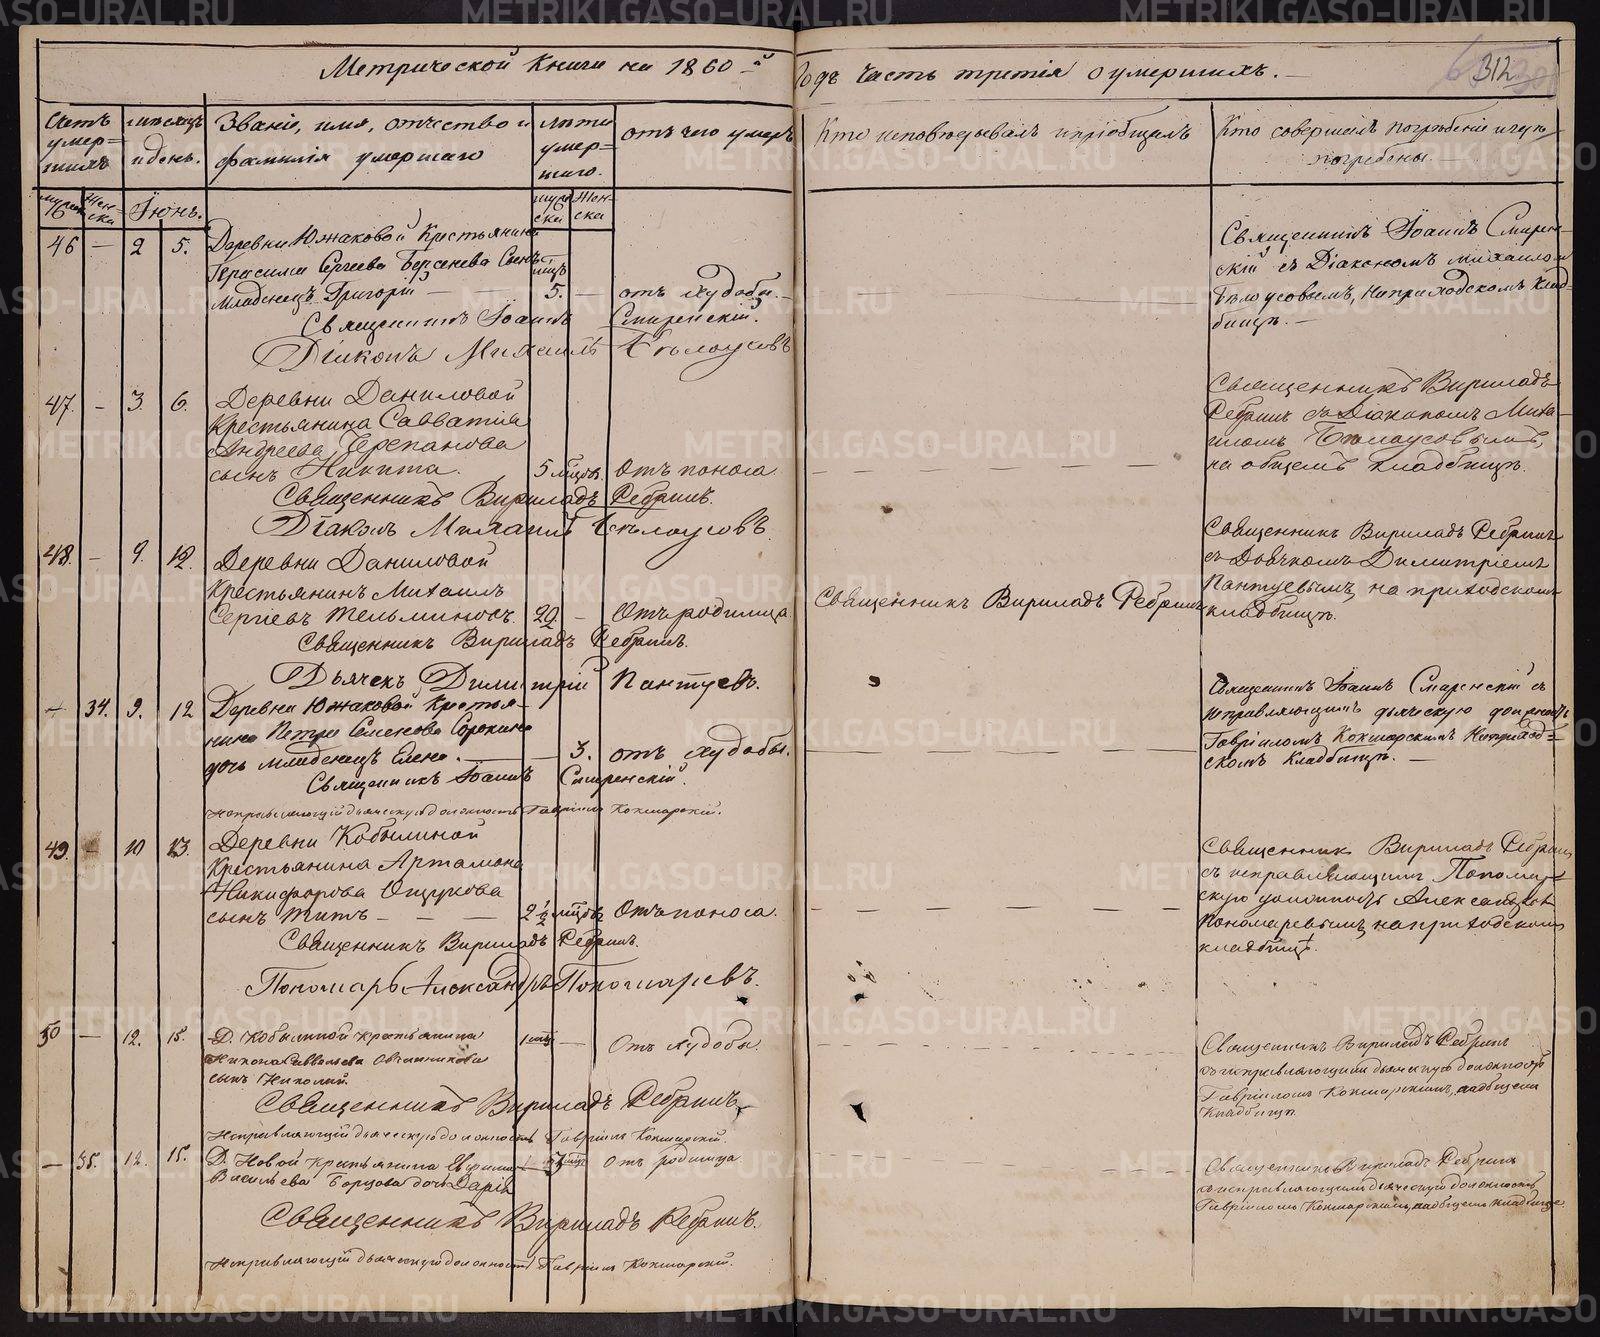 Метрической Книги на 1860-й
Годъ Часть третія о умершихъ.
312
Счетъ умер=шихъ
мѣсяцъ и день.
Званіе, имя, отчество и фамилія умершаго
лѣта умер=шаго.
отъ чего умеръ
Кто исповѣдывалъ и пріобщалъ
Кто совершалъ погребеніе и гдѣ погребены.
муж Жен-ска
Іюнь.
муж ска Жен-ска
46 — 2 5. Деревни Южаковой Крестьянина
Герасима Сергеева Берсенева Сынъ
Младенецъ Григорій — 5. мцъ — отъ худобы.
Священникъ Іоаннъ Смиренскій.
Діаконъ Михаилъ Бѣлоусовъ
Священникъ Іоаннъ Смирен-
скій съ Діакономъ Михаиломъ
Бѣлоусовымъ, на приходскомъ Клад-
бищѣ.
47. — 3. 6. Деревни Даниловой
Крестьянина Савватія
Андреева Черепанова
сынъ Никита. 5 мцовъ. Отъ поноса
Священникъ Вириладъ Ребринъ.
Діаконъ Михаилъ Бѣлоусовъ
Священникъ Вириладъ
Ребринъ съ Діакономъ Миха-
иломъ Бѣлоусовымъ,
на общемъ кладбищѣ.
48. — 9. 12. Деревни Даниловой
Крестьянинъ Михаилъ
Сергіевъ 29. — Отъ родимца
Священникъ Вириладъ Ребринъ.
Дьячекъ Димитрій Пантуевъ.
Священникъ Вириладъ Ребринъ
Священникъ Вириладъ Ребринъ
съ Дьячкомъ Димитріемъ
Пантуевымъ, на приходскомъ
кладбищѣ.
— 34. 9. 12 Деревни Южаковой Крестья-
нина Петра Семенова Сорокина
дочь младенецъ Елена. — 3. отъ худобы.
Священникъ Іоаннъ Смиренскій.
Исправляющій дьяческую должность Гавріилъ Кокшарскій.
Священникъ Іоаннъ Смиренскій съ
исправляющимъ дьяческую должность
Гавріиломъ Кокшарскимъ На приход=
скомъ Кладбищѣ. —
49. — 10 13. Деревни Кобылиной
Крестьянина Артамона
Никифорова Ощукова
сынъ Титъ — 2 1/2 мцовъ Отъ поноса.
Священникъ Вириладъ Ребринъ.
Пономарь Александръ Пономаревъ.
Священникъ Вириладъ Ребринъ
съ исправляющимъ Пономар=
скую должность Александромъ
Пономаревымъ, на приходскомъ
кладбищѣ.
50 — 12. 15. Д. Кобылиной крестьянина
Никона Савельева Овчинникова
сынъ Николай. 1 мцъ — Отъ худобы.
Священникъ Вириладъ Ребринъ.
Исправляющій дьяческую должность Гавріилъ Кокшарскій.
Священникъ Вириладъ Ребринъ
съ исправляющимъ дьяческую должность
Гавріиломъ Кокшарскимъ, на общемъ
Кладбищѣ.
— 35. 12. 15. Д. Новой крестьянина
Васильева Борцова дочь Дарія Отъ родимца
Священникъ Вириладъ Ребринъ.
Исправляющій дьяческую должность Гавріилъ Кокшарскій.
Священникъ Вириладъ Ребринъ
съ исправляющимъ дьяческую должность
Гавріиломъ Кокшарскимъ, на общемъ кладбищѣ.
METRIKI.GASO-URAL.RU